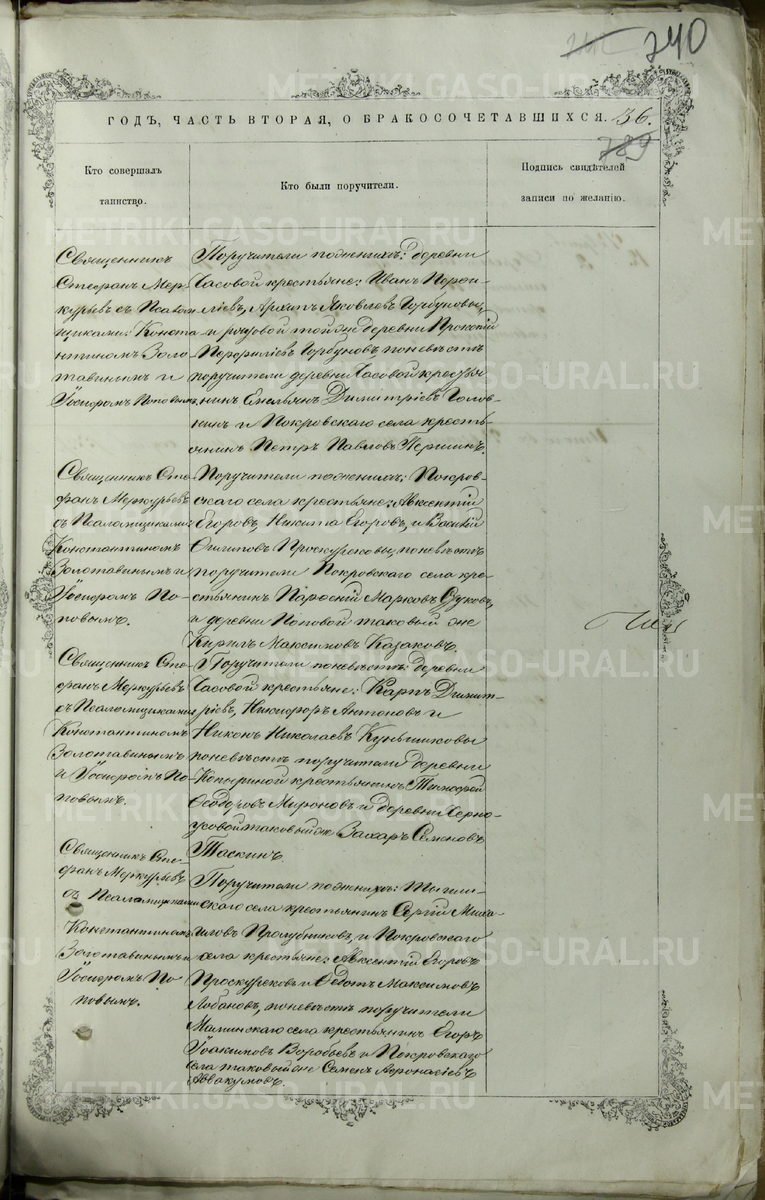 740
ГОДЪ, ЧАСТЬ ВТОРАЯ, О БРАКОСОЧЕТАВШИХСЯ. 36.
789
Кто совершалъ
таинство.
Кто были поручители.
Подпись свидѣтелей
записи по желанію.
Священникъ
Стефанъ Мер-
курьевъ съ Псалом
щиками: Конста
нтиномъ Золо
тавинымъ и
Іосифомъ Поповымъ.
Поручители по женихѣ: деревни
Часовой крестьяне: Иванъ Перфи-
лiевъ, Архипъ Яковлевъ Горбуновы,
и рядовой той же деревни Прокопій
Перфилiевъ Горбуновъ, по невѣстѣ
поручители деревни Часовой крестья
нинъ Емельянъ Димитріевъ Голов
нинъ и Покровскаго села кресть-
янинъ Петръ Павловъ Першинъ.
Священникъ Сте-
фанъ Меркурьевъ
съ Псаломщиками
Константиномъ
Золотавинымъ и
Іосифомъ По-
повымъ.
Поручители по женихѣ: Покров-
скаго села крестьяне: Авксентій
Егоровъ, Никита Егоровъ, и Василій
Филиповъ Проскурековы, по невѣстѣ
поручители Покровскаго села кре-
стьянинъ Марковъ
и деревни Поповой таковый же
Кирилъ Максимовъ Казаковъ.
Священникъ Сте-
фанъ Меркурьевъ
съ Псаломщиками
Константиномъ
Золотавинымъ
и Іосифомъ По-
повымъ.
Поручители по невѣстѣ: деревни
Часовой крестьяне: Карпъ Димит-
ріевъ, Никифоръ Антоновъ и
Никонъ Николаевъ Куньщиковы
по невѣстѣ поручители деревни
крестьянинъ Тимофей
Ѳеодоровъ Мироновъ и деревни Черно-
усовой таковый же Захаръ Семеновъ
Таскинъ
Священникъ Сте-
фанъ Меркурьевъ
съ Псаломщиками
Константиномъ
Золотавинымъ и
Іосифомъ По
повымъ.
Поручители по женихѣ:
скаго села крестьянинъ Сергій Миха-
иловъ Пролубниковъ, и Покровскаго
села крестьяне: Авксентій Егоровъ
Проскурековъ и Ѳедотъ Максимовъ
Лобановъ, по невѣстѣ поручители
Маминскаго села крестьянинъ Егоръ
Іоакимовъ Воробьевъ и Покровскаго
села таковый же Семенъ Афонасіевъ
Аввакумовъ.
METRIKI.GASO-URAL.RU